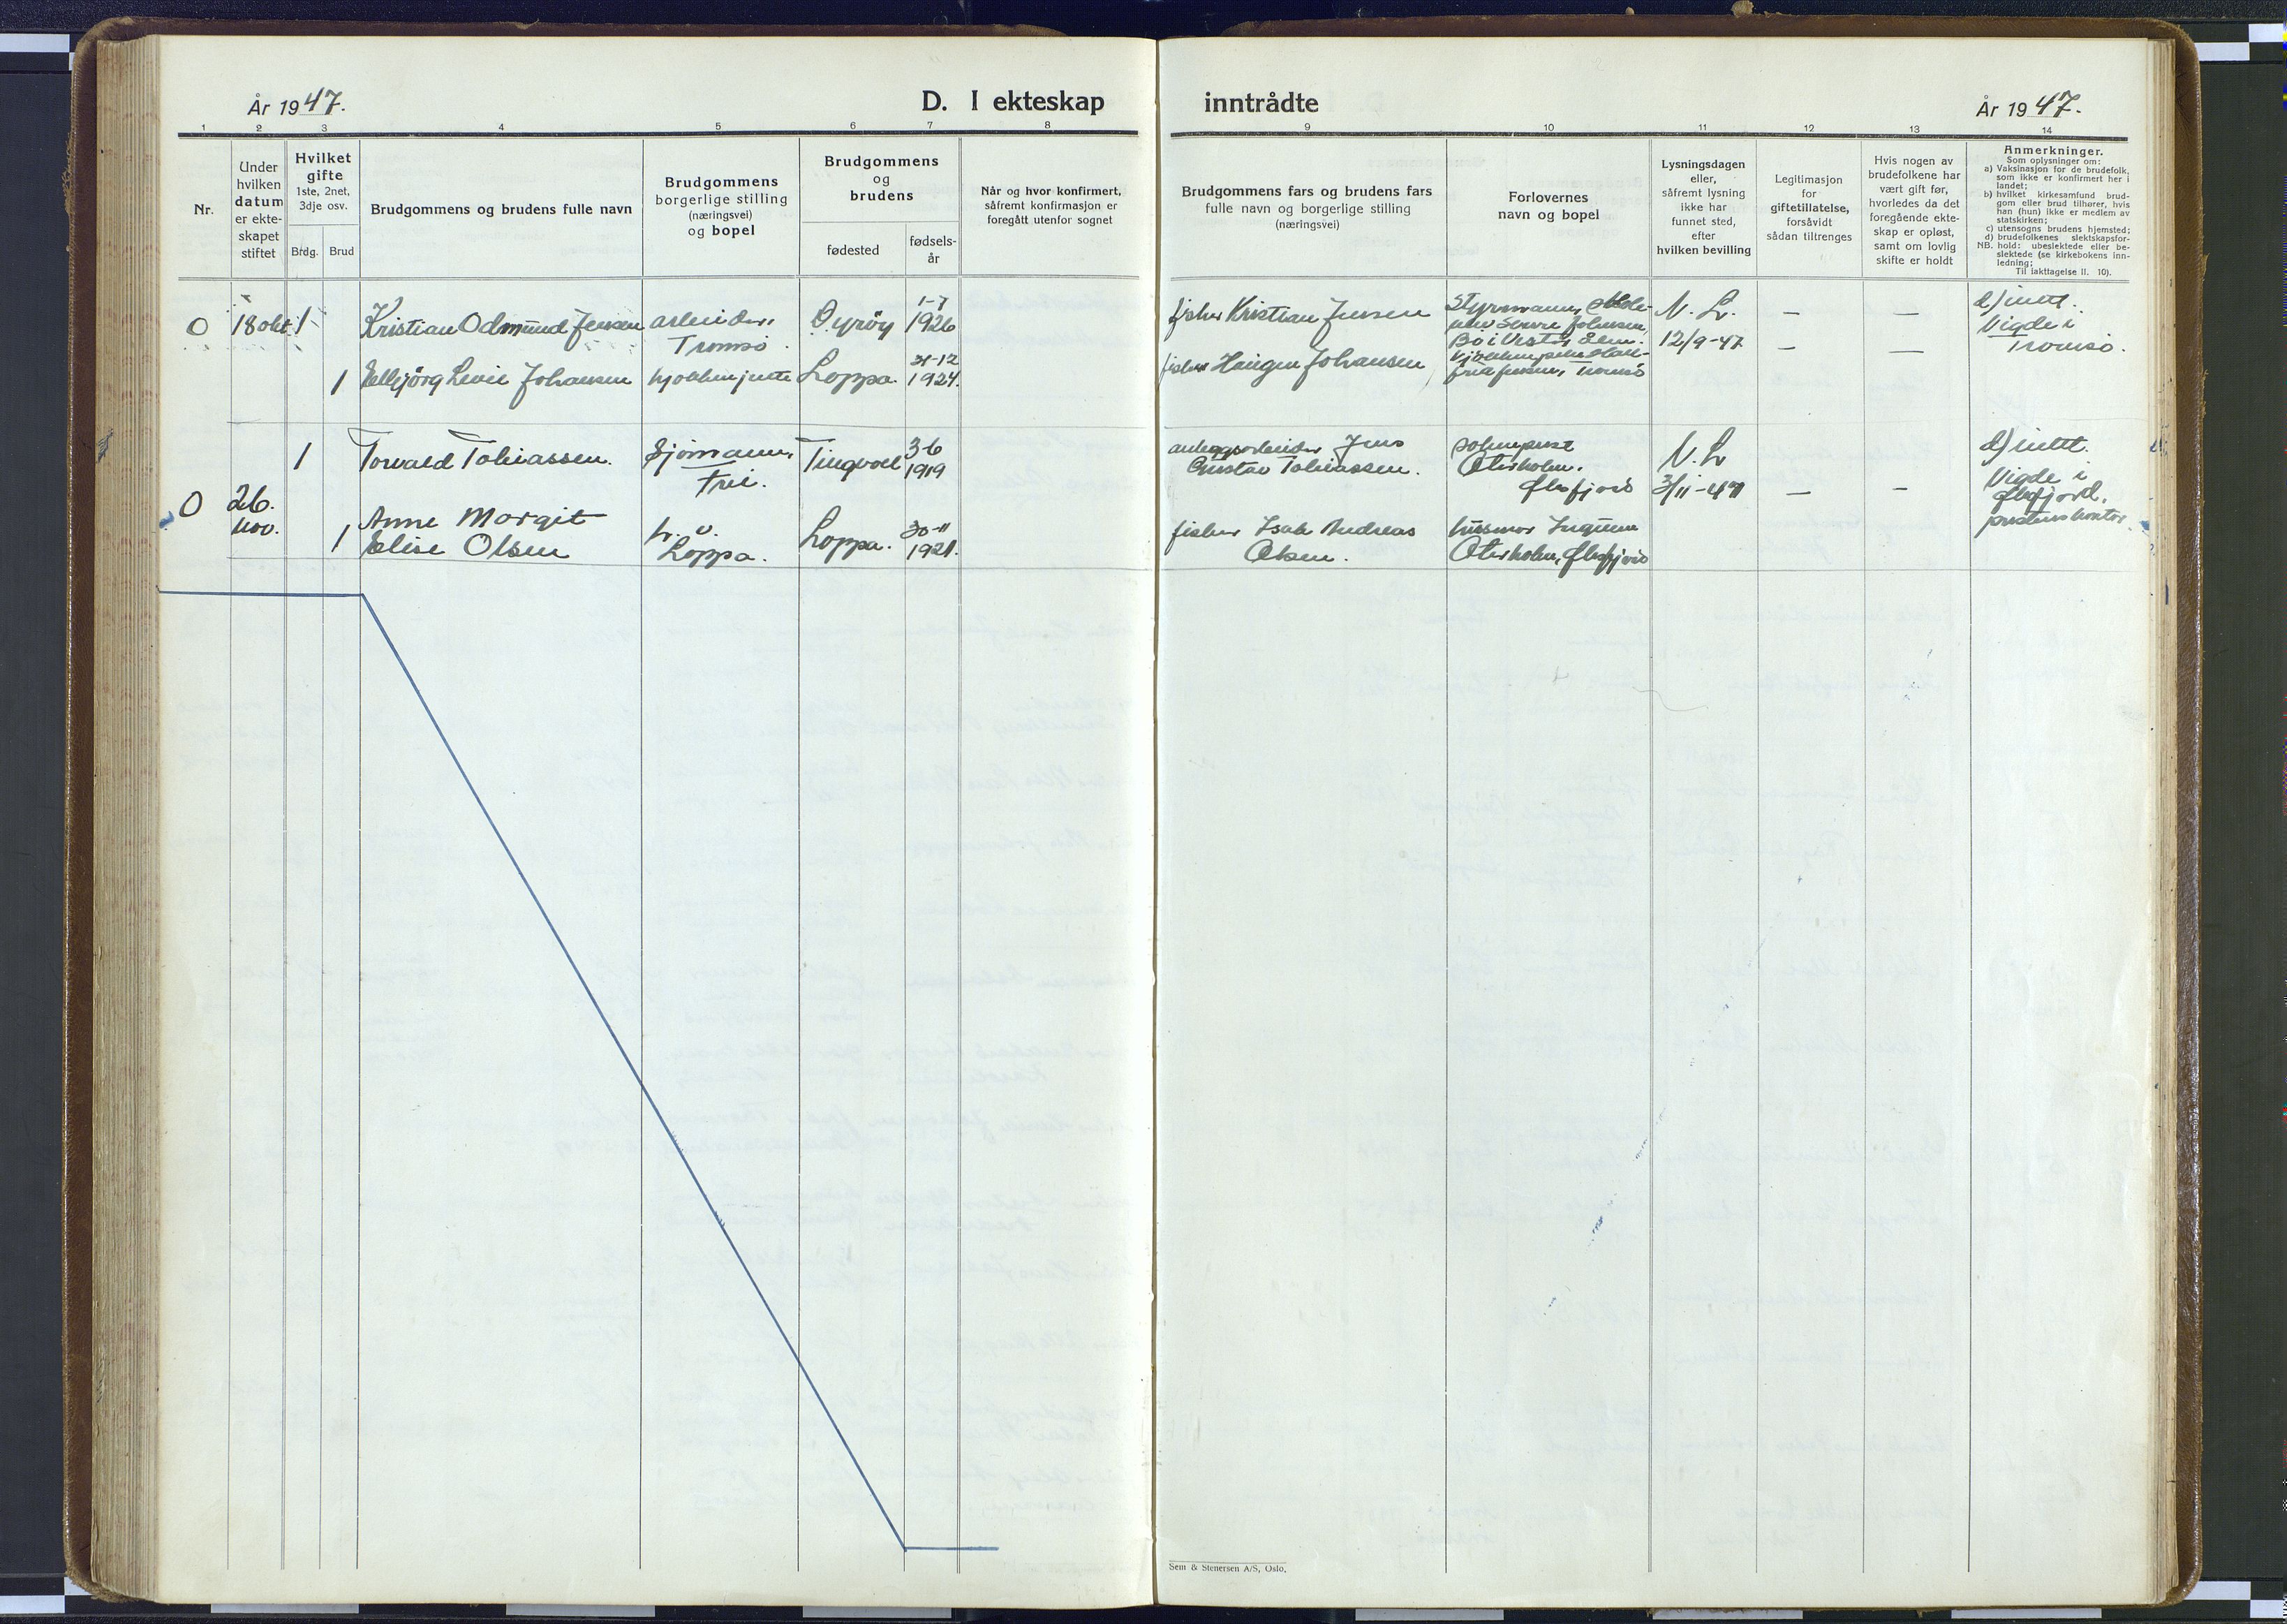 År 1947.
D. I ekteskap
inntrådte
År 1947.
1 2 3 4 5 6 7 8 9 10 11 12 13 14
Nr.
Under
hvilken
datum
er ekte-
skapet
stiftet
Hvilket
gifte
1ste, 2net,
3dje osv.
Brdg. Brud
Brudgommens og brudens fulle navn
Brudgommens
borgerlige stilling
(næringsvei)
og bopel
Brudgommens
og
brudens
fødested
fødsels-
år
Når og hvor konfirmert,
såfremt konfirmasjon er
foregått utenfor sognet
Brudgommens fars og brudens fars
fulle navn og borgerlige stilling
(næringsvei)
Forlovernes
navn og bopel
Lysningsdagen
eller,
såfremt lysning
ikke har
funnet sted,
efter
hvilken bevilling
Legitimasjon
for
giftetillatelse,
forsåvidt
sådan tiltrenges
Hvis nogen av
brudefolkene har
vært gift før,
hvorledes da det
foregående ekte-
skap er opløst,
samt om lovlig
skifte er holdt
Anmerkninger.
Som oplysninger om:
a) Vaksinasjon for de brudefolk,
som ikke er konfirmert her i
landet;
b) hvilket kirkesamfund brud-
gom eller brud tilhører, hvis
han (hun) ikke er medlem av
statskirken;
c) utensogns brudens hjemsted;
d) brudefolkenes slektskapsfor-
NB. hold: ubeslektede eller be-
slektede (se kirkebokens inn-
ledning;
Til iakttagelse II. 10).
O 18 okt. 1 Kristian Odmund Jensen arbeider, Dyrøy 1-7
Tromsø. 1926
fisker Kristian Jensen
Styrmann
N. L.
12/9-47
— —
d) intet.
Vigde i
Tromsø.
1 Eldbjørg Levie Johansen kjøkkenjente Loppa. 31-12
1924.
fisker Haagen Johansen
Tromsø
— —
1 Torvald Tobiassen. Sjømann, Tingvoll 3-6
Frei. 1919
anleggsarbeider Jens
Gustav Tobiassen.
Oterholm,
Øksfjord
N. L.
3/11-47
— —
d) intet.
Vigde i
Øksfjord,
prestens kontor.
O 26.
nov.
1 Anne Margit
Elise Olsen
h. v.
Loppa.
Loppa. 30-11
1921.
fisker Isak Andreas
Olsen.
husmor Ingunn
Oterholm, Øksfjord
Sem & Stenersen A/S, Oslo.